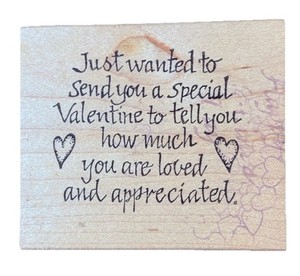 Just wanted to
send you a special
Valentine to tell you
how much
you are loved
and appreciated.